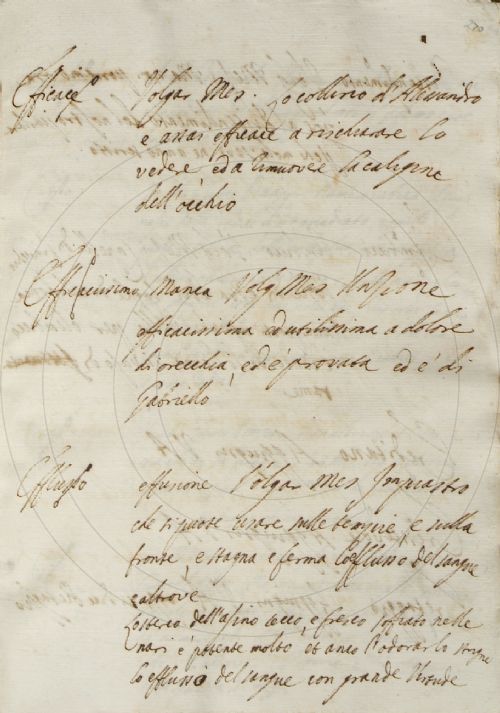 Efficace Volgar Mes. Lo collirio d'Alessandro
e assai efficace a rischiarare lo
vedere, ed a rimuovere la caligine
dell'occhio
Efficacissimo Manca Volg Mes Unzione
efficacissima ed utilissima a dolore
di orecchia, ed è provata ed è di
Gabriello
Efflusso effusione Volgar Mes Impiastro
che si puote usare sulle tempie, e sulla
fronte, e stagna e ferma l'efflusso del sangue
e altrove
Lo sterco dell'asino secco, e fresco soffiato nelle
nari è potente molto, et anco l'odorarlo strigne
lo efflusso del sangue con grande virtude